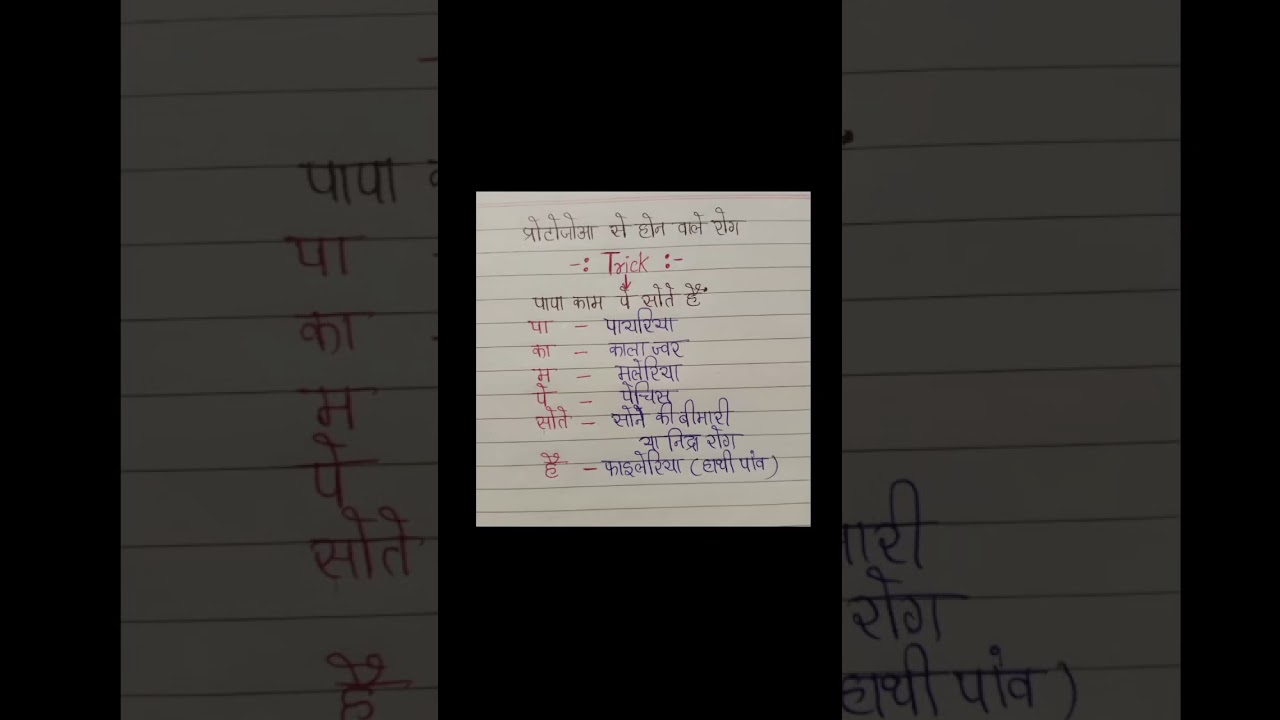 प्रोटोजोआ से होन वाले रोग
-: Trick :-
पापा काम पे सोते हैं
पा - पायरिया
का - काला ज्वर
म - मलेरिया
पे - पेचिस
सोते - सोने की बीमारी
या निद्रा रोग
है - फाइलेरिया (हाथी पांव)
पापा
पा
का
म
पे
सोते
है
मारी
रोग
हाथी पांव)